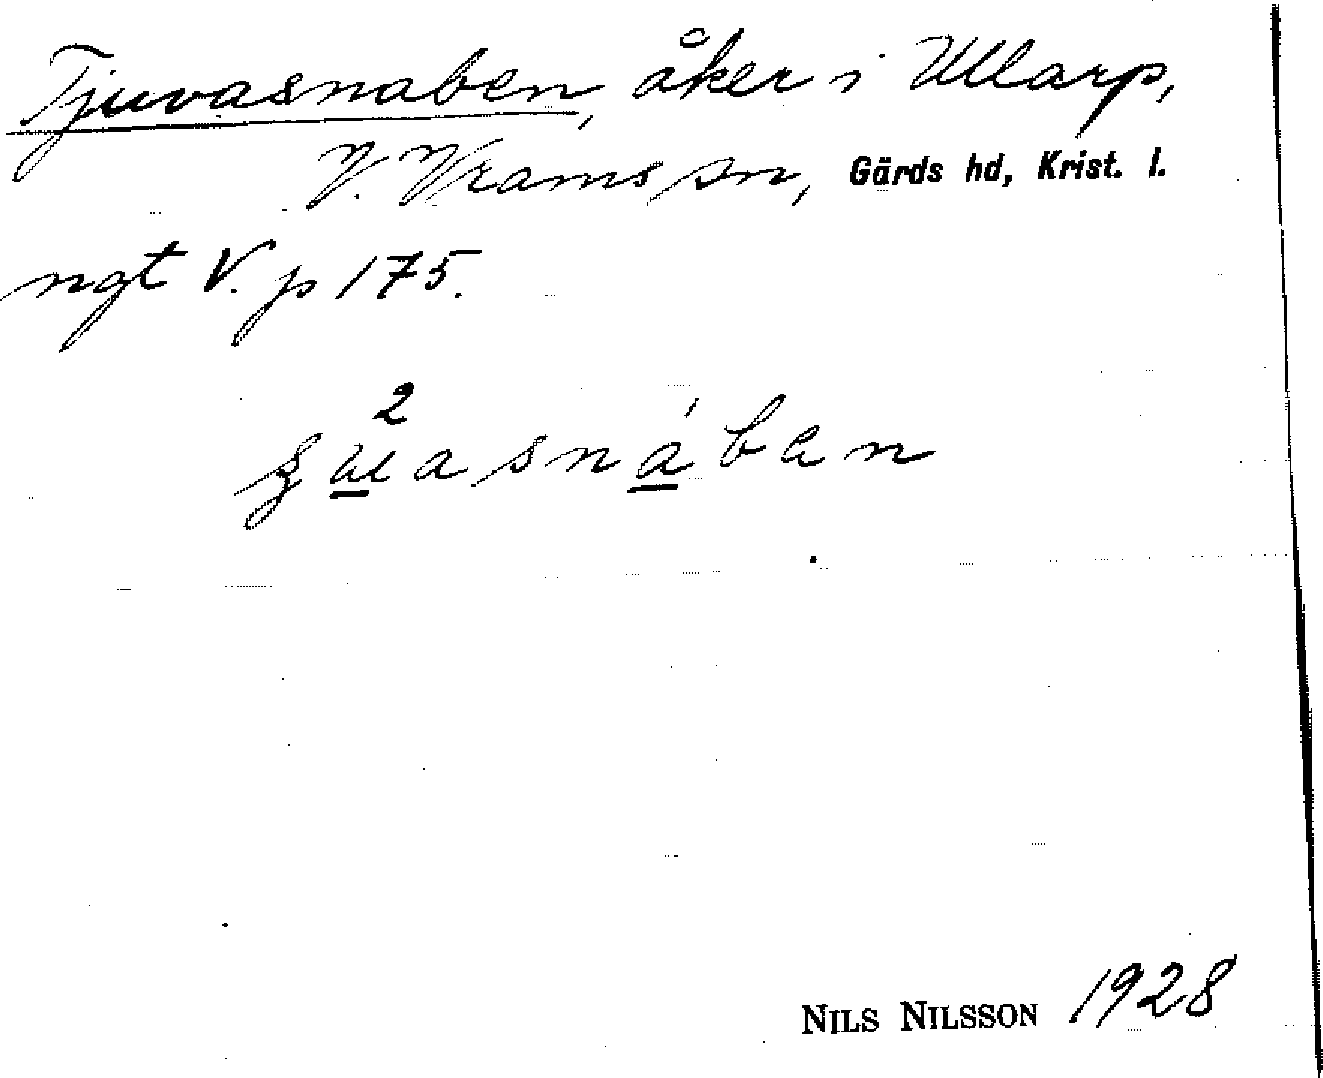 Tjuvasnaben, åker i Ullarp,
V. Vrams sn, Gärds hd, Krist. l.
ngt V. p 175.
2
NILS NILSSON 1928